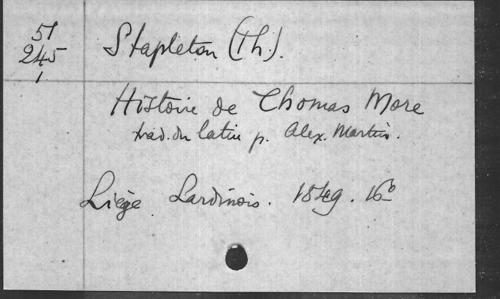 51
245
1
Stapleton (Th.).
Histoire de Thomas More
trad. du latin p. Alex. Martin.
Liège. Lardinois. 1849. 16°